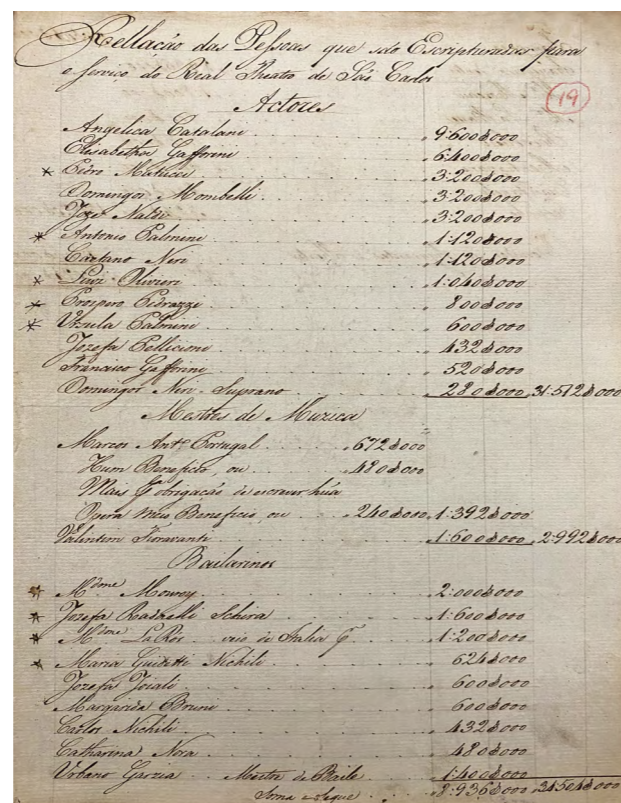 Rellação das Pessoas que são Escripturadas para
o serviço do Real Theatro de São Carlos
19
Actores
Angelica Catalani 9:600$000
Elisabetha Gafforini 6:400$000
* Pedro Matucci 3:200$000
Domingos Mombelli 3:200$000
Joze Naldi 3:200$000
* Antonio Palmini 1:120$000
Caetano Neri 1:120$000
* Luiz Olivieri 1:040$000
* Prospero Pedrazzi 800$000
* Ursula Palmini 600$000
Jozefa Pellicioni 432$000
Francisco Gafforini 520$000
Domingos Neri - Suprano 280$000 31:512$000
Mestres de Muzica
Marcos Antº Portugal 672$000
Hum Beneficio ou 480$000
Mais pª obrigação de escrever húa
Opera meio Beneficio ou 240$000 1:392$000
Valentim Fioravante 1:600$000 2:992$000
Bailarinos
* Mdme Mouroy 2:000$000
* Jozefa Radaelli Schira 1:600$000
* Mdme La Ros veio de Italia 1:200$000
* Maria Guidetti Nichili 624$000
Jozefa 600$000
Margarida Bruni 600$000
Carlos Nichili 432$000
Catharina Nora 480$000
Urbano Garzia Mestre de Baile 1:400$000
Soma e Segue 8:936$000 34:504$000